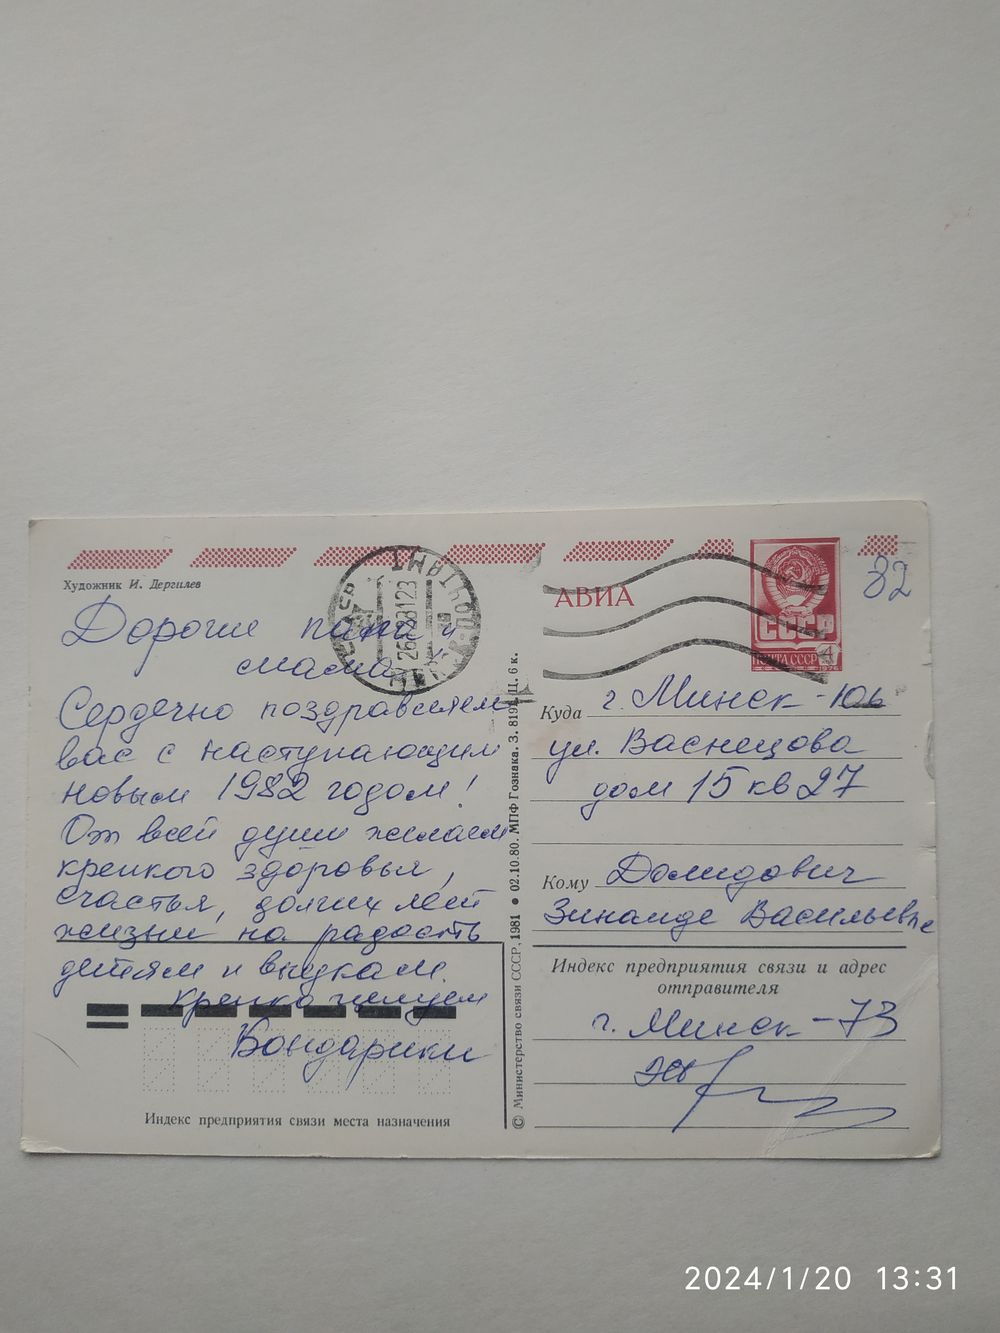 Художник И. Дергилев
Дорогие папа и
мама!
Сердечно поздравляем
вас с наступающим
новым 1982 годом!
От всей души желаем
крепкого здоровья,
счастья, долгих лет
жизни на радость
детям и внукам.
крепко целуем
Бондарики
Индекс предприятия связи места назначения
© Министерство связи СССР, 1981 • 02.10.80. МПФ Гознака. З. Ц. 6 к.
АВИА
СССР
ПОЧТА СССР 4
1976
82
Куда г. Минск-
ул. Васнецова
дом 15 кв 27
Кому Домидович
Зинаиде Васильевне
Индекс предприятия связи и адрес
отправителя
г. Минск-73
2024/1/20 13:31